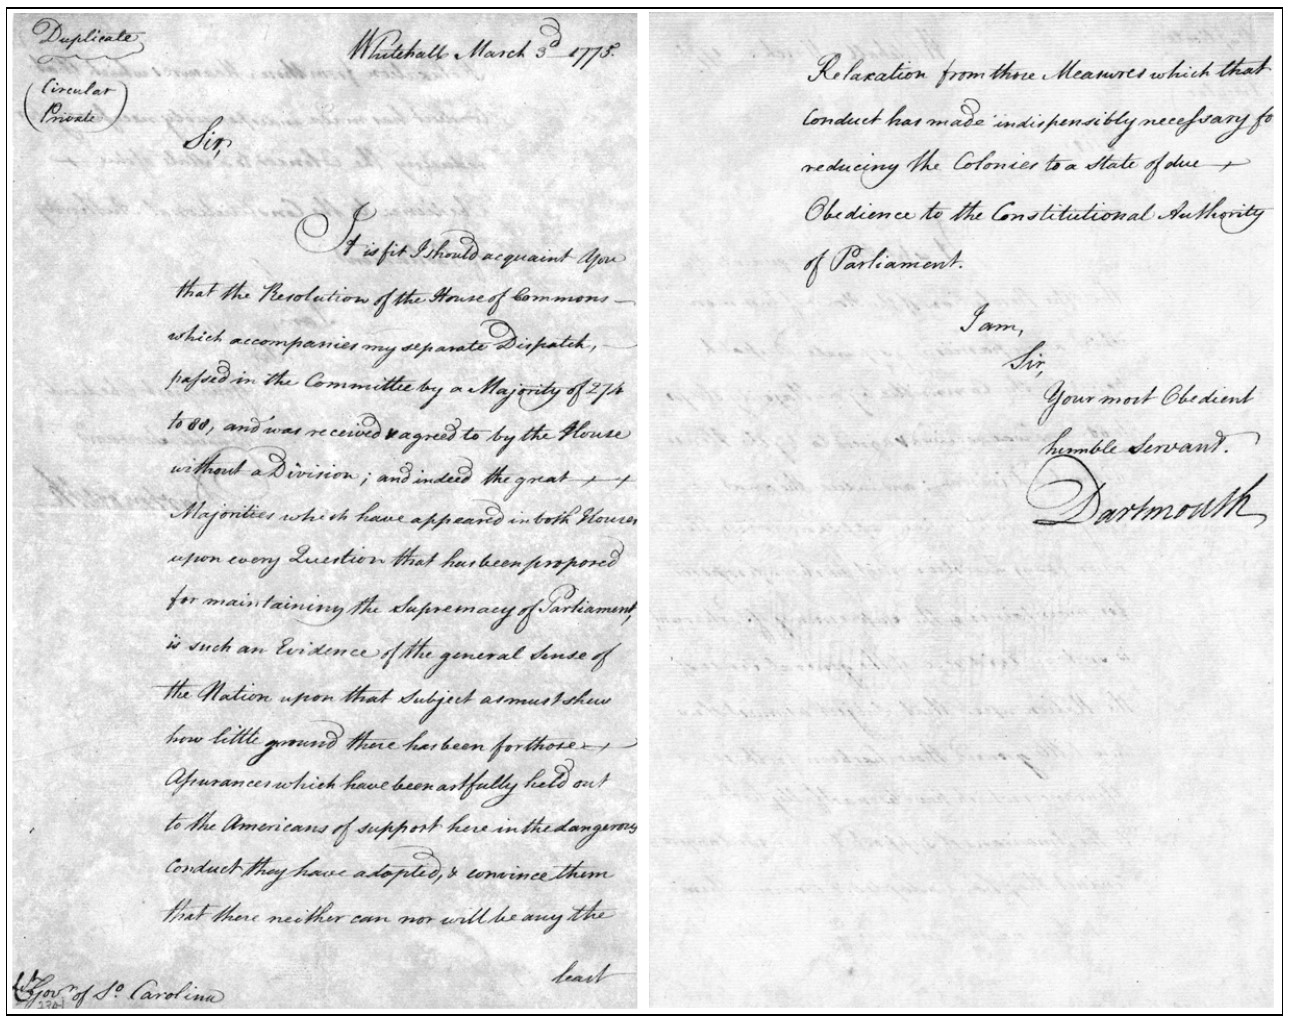 Duplicate
Whitehall March 3d 1775.
Circular
Private
Sir,
It is fit I should acquaint You
that the Resolution of the House of Commons
which accompanies my separate Dispatch,
passed in the Committee by a Majority of 274
to 88, and was received & agreed to by the House
without a Division; and indeed the great
Majorities which have appeared in both Houses
upon every Question that has been proposed
for maintaining the Supremacy of Parliament,
is such an Evidence of the general Sense of
the Nation upon that Subject as must shew
how little ground there has been for those
Assurances which have been artfully held out
to the Americans of support here in the dangerous
Conduct they have adopted, & convince them
that there neither can nor will be any the
least
Govr. of So. Carolina
Relaxation from those Measures which that
Conduct has made indispensibly necessary fo
reducing the Colonies to a State of due
Obedience to the Constitutional Authority
of Parliament.
I am,
Sir,
Your most Obedient
humble Servant.
Dartmouth